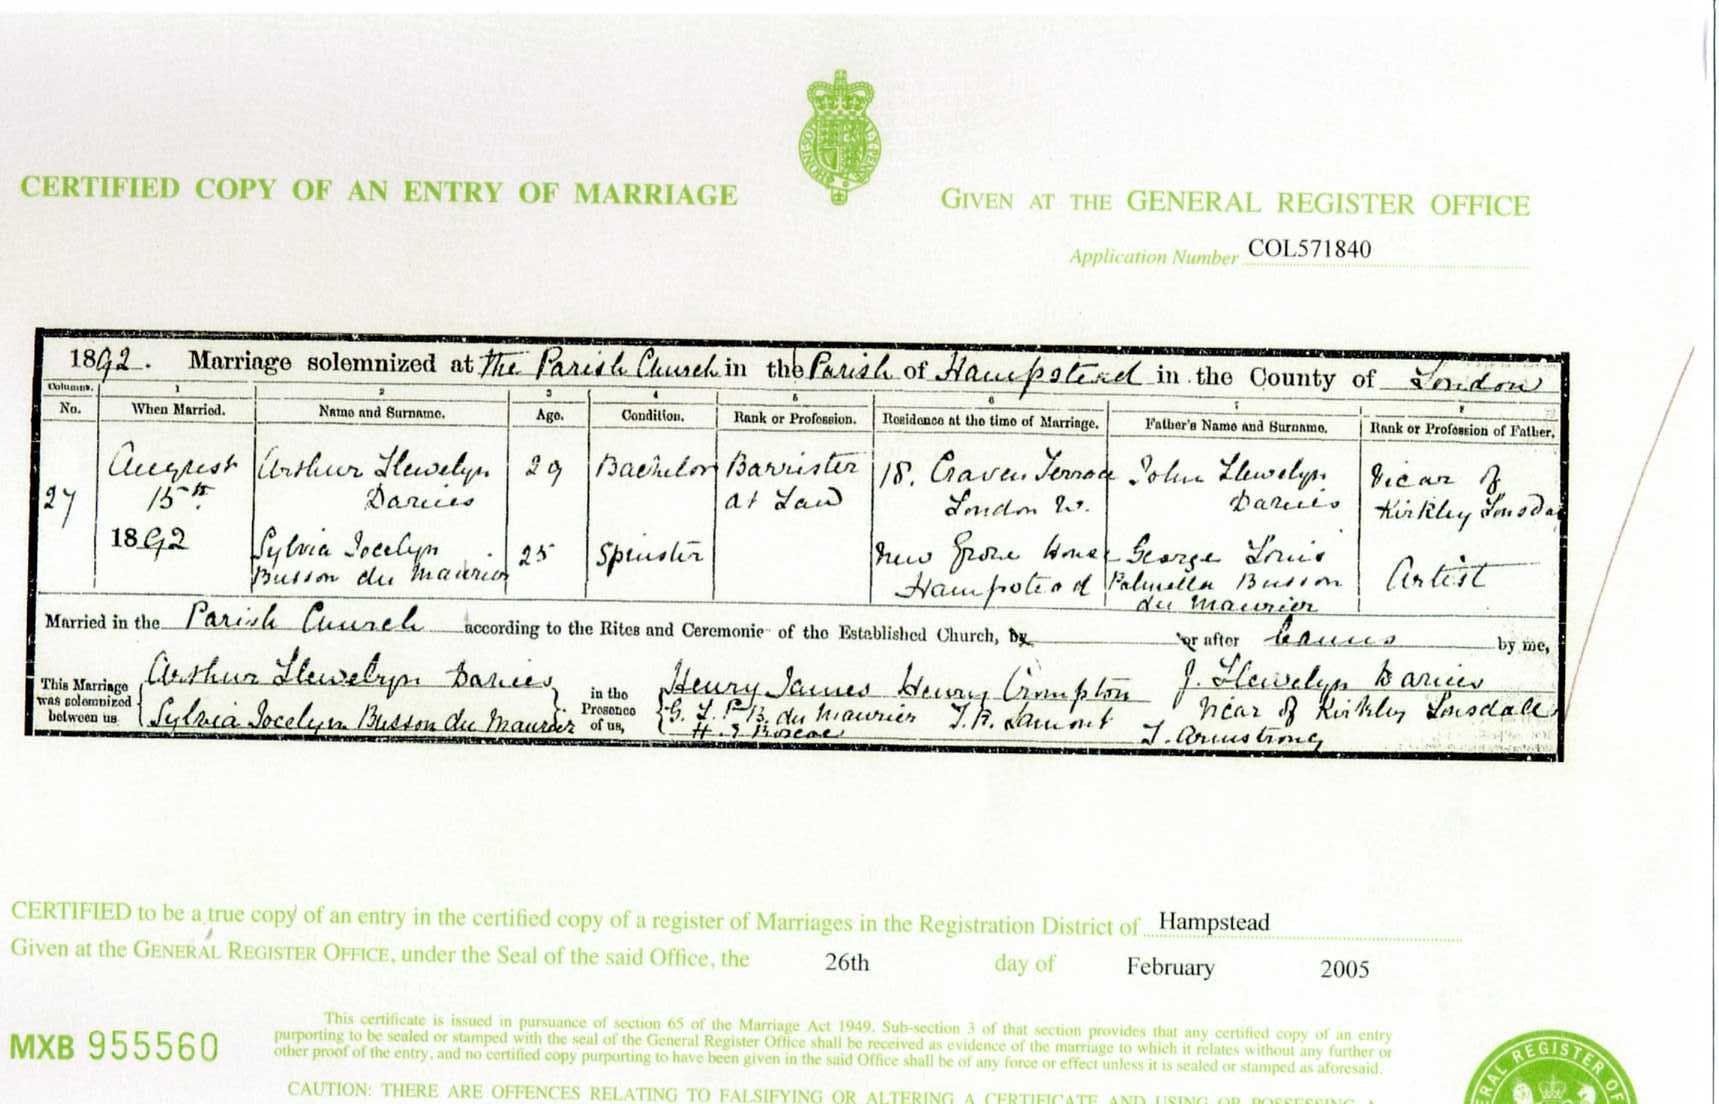 CERTIFIED COPY OF AN ENTRY OF MARRIAGE
GIVEN AT THE GENERAL REGISTER OFFICE
Application Number COL571840
1892. Marriage solemnized at the Parish Church in the Parish of Hampstead in the County of London
Columns. 1 2 3 4 5 6 7 8
No. When Married. Name and Surname. Age. Condition. Rank or Profession. Residence at the time of Marriage. Father's Name and Surname. Rank or Profession of Father.
27 August 15th 1892 Arthur Llewelyn Davies 29 Bachelor Barrister at Law 18. Craven Terrace London W. John Llewelyn Davies Vicar of Kirkby Lonsdale
Sylvia Jocelyn Busson du Maurier 25 Spinster New Grove House Hampstead George Louis Palmella Busson du Maurier Artist
Married in the Parish Church according to the Rites and Ceremonies of the Established Church, by or after Banns by me,
This Marriage was solemnized between us Arthur Llewelyn Davies Sylvia Jocelyn Busson du Maurier in the Presence of us, Henry James Henry Crompton G. L. P. B. du Maurier T. R. Lamont H. E. Roscoe T. Armstrong J. Llewelyn Davies Vicar of Kirkby Lonsdale
CERTIFIED to be a true copy of an entry in the certified copy of a register of Marriages in the Registration District of Hampstead
Given at the GENERAL REGISTER OFFICE, under the Seal of the said Office, the 26th day of February 2005
MXB 955560
This certificate is issued in pursuance of section 65 of the Marriage Act 1949. Sub-section 3 of that section provides that any certified copy of an entry
purporting to be sealed or stamped with the seal of the General Register Office shall be received as evidence of the marriage to which it relates without any further or
other proof of the entry, and no certified copy purporting to have been given in the said Office shall be of any force or effect unless it is sealed or stamped as aforesaid.
CAUTION: THERE ARE OFFENCES RELATING TO FALSIFYING OR ALTERING A CERTIFICATE AND USING OR POSSESSING A
REGISTER